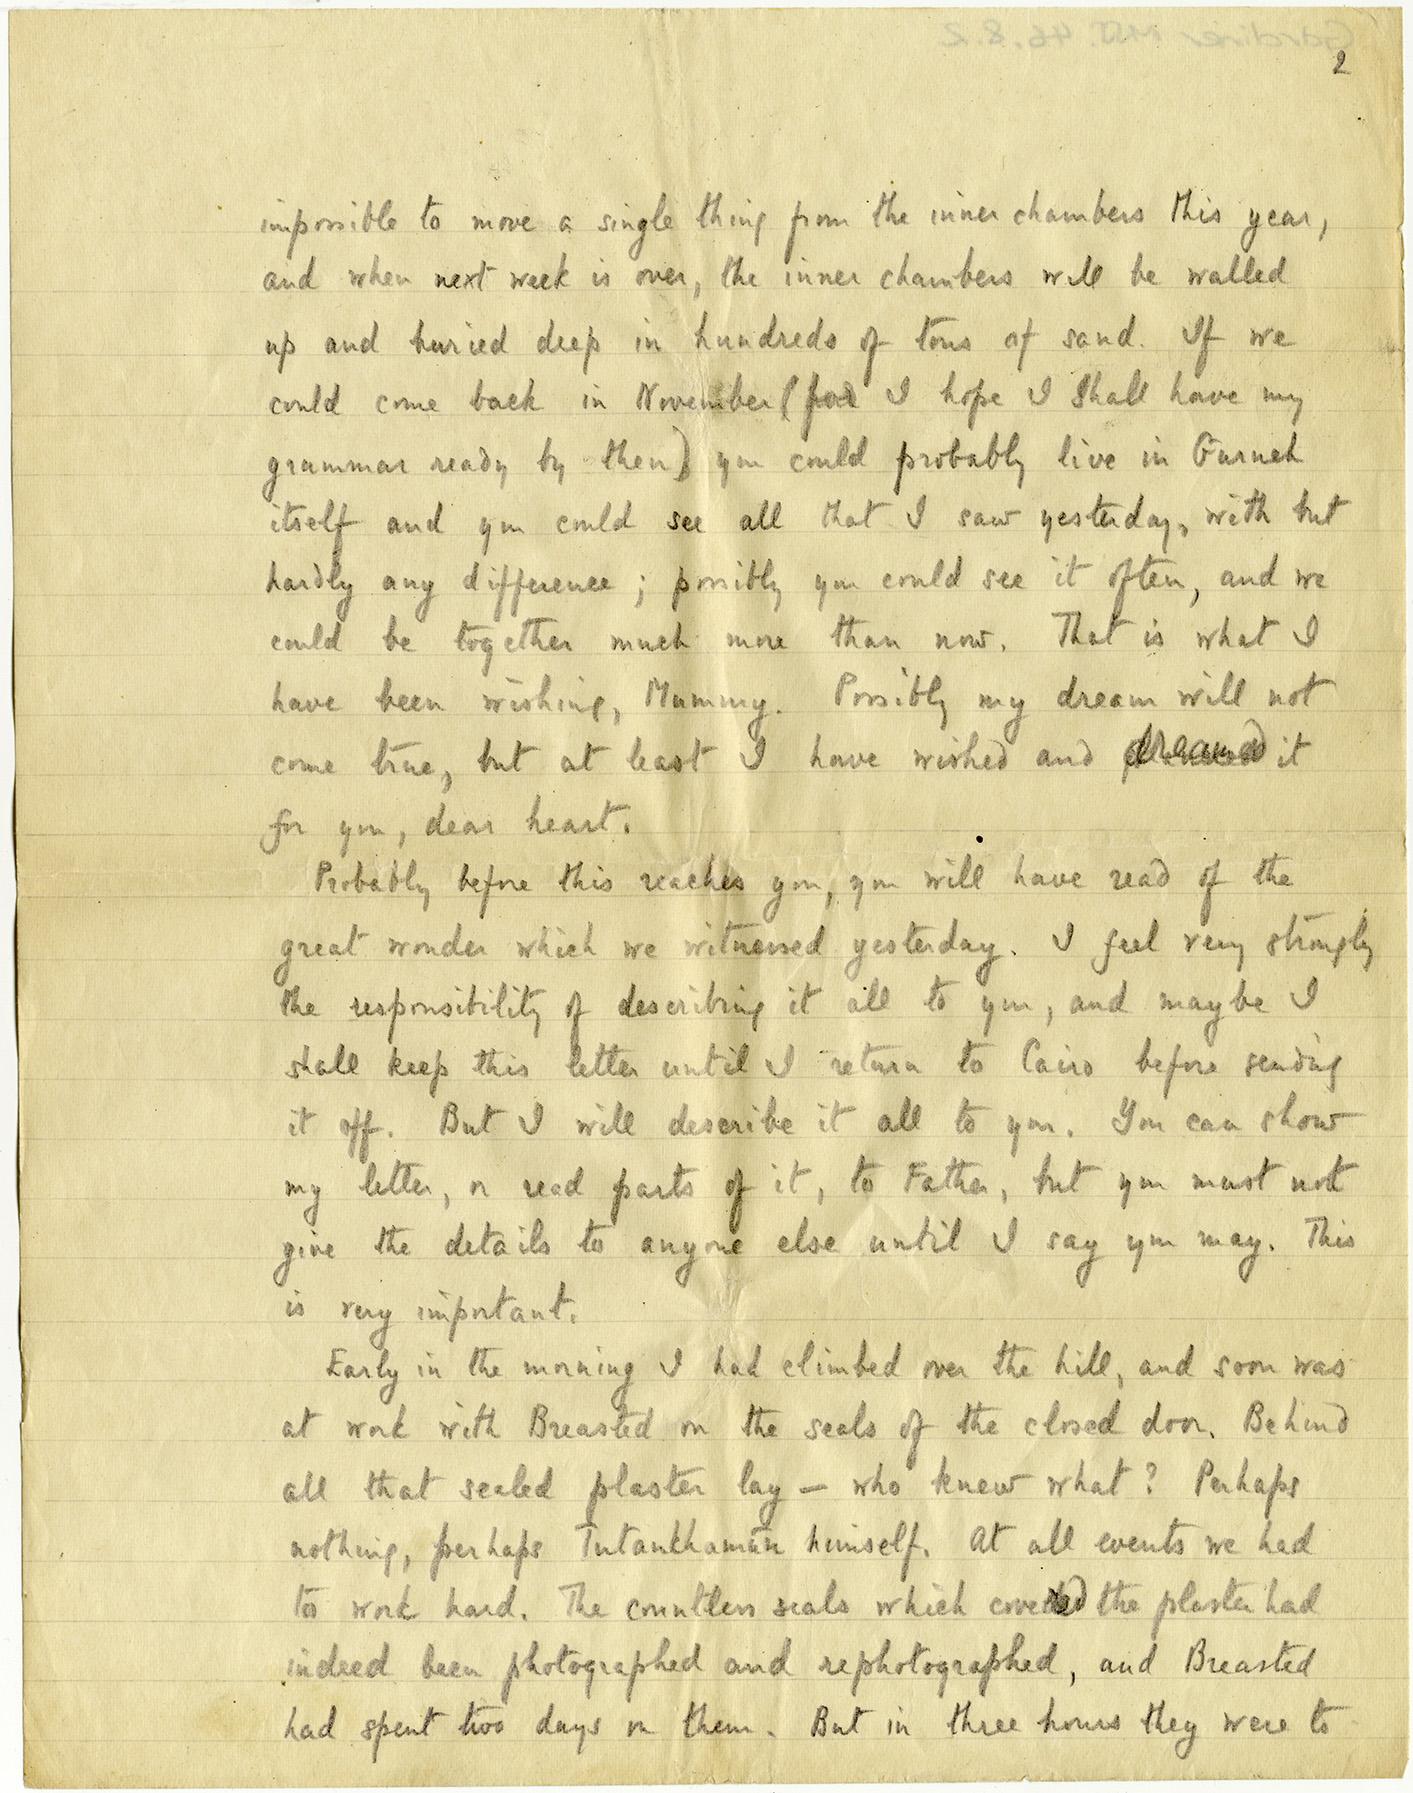 2
impossible to move a single thing from the inner chambers this year,
and when next week is over, the inner chambers will be walled
up and buried deep in hundreds of tons of sand. If we
could come back in November (for I hope I shall have my
grammar ready by then) you could probably live in Gurneh
itself and you could see all that I saw yesterday, with but
hardly any difference; possibly you could see it often, and we
could be together much more than now. That is what I
have been wishing, Mummy. Possibly my dream will not
come true, but at least I have wished and dreamed it
for you, dear heart.
Probably before this reaches you, you will have read of the
great wonder which we witnessed yesterday. I feel very strongly
the responsibility of describing it all to you, and maybe I
shall keep this letter until I return to Cairo before sending
it off. But I will describe it all to you. You can show
my letter, or read parts of it, to Father, but you must not
give the details to anyone else until I say you may. This
is very important.
Early in the morning I had climbed over the hill, and soon was
at work with Breasted on the seals of the closed door. Behind
all that sealed plaster lay – who knew what? Perhaps
nothing, perhaps Tutankhamūn himself. At all events we had
to work hard. The countless seals which covered the plaster had
indeed been photographed and rephotographed, and Breasted
had spent two days on them. But in three hours they were to